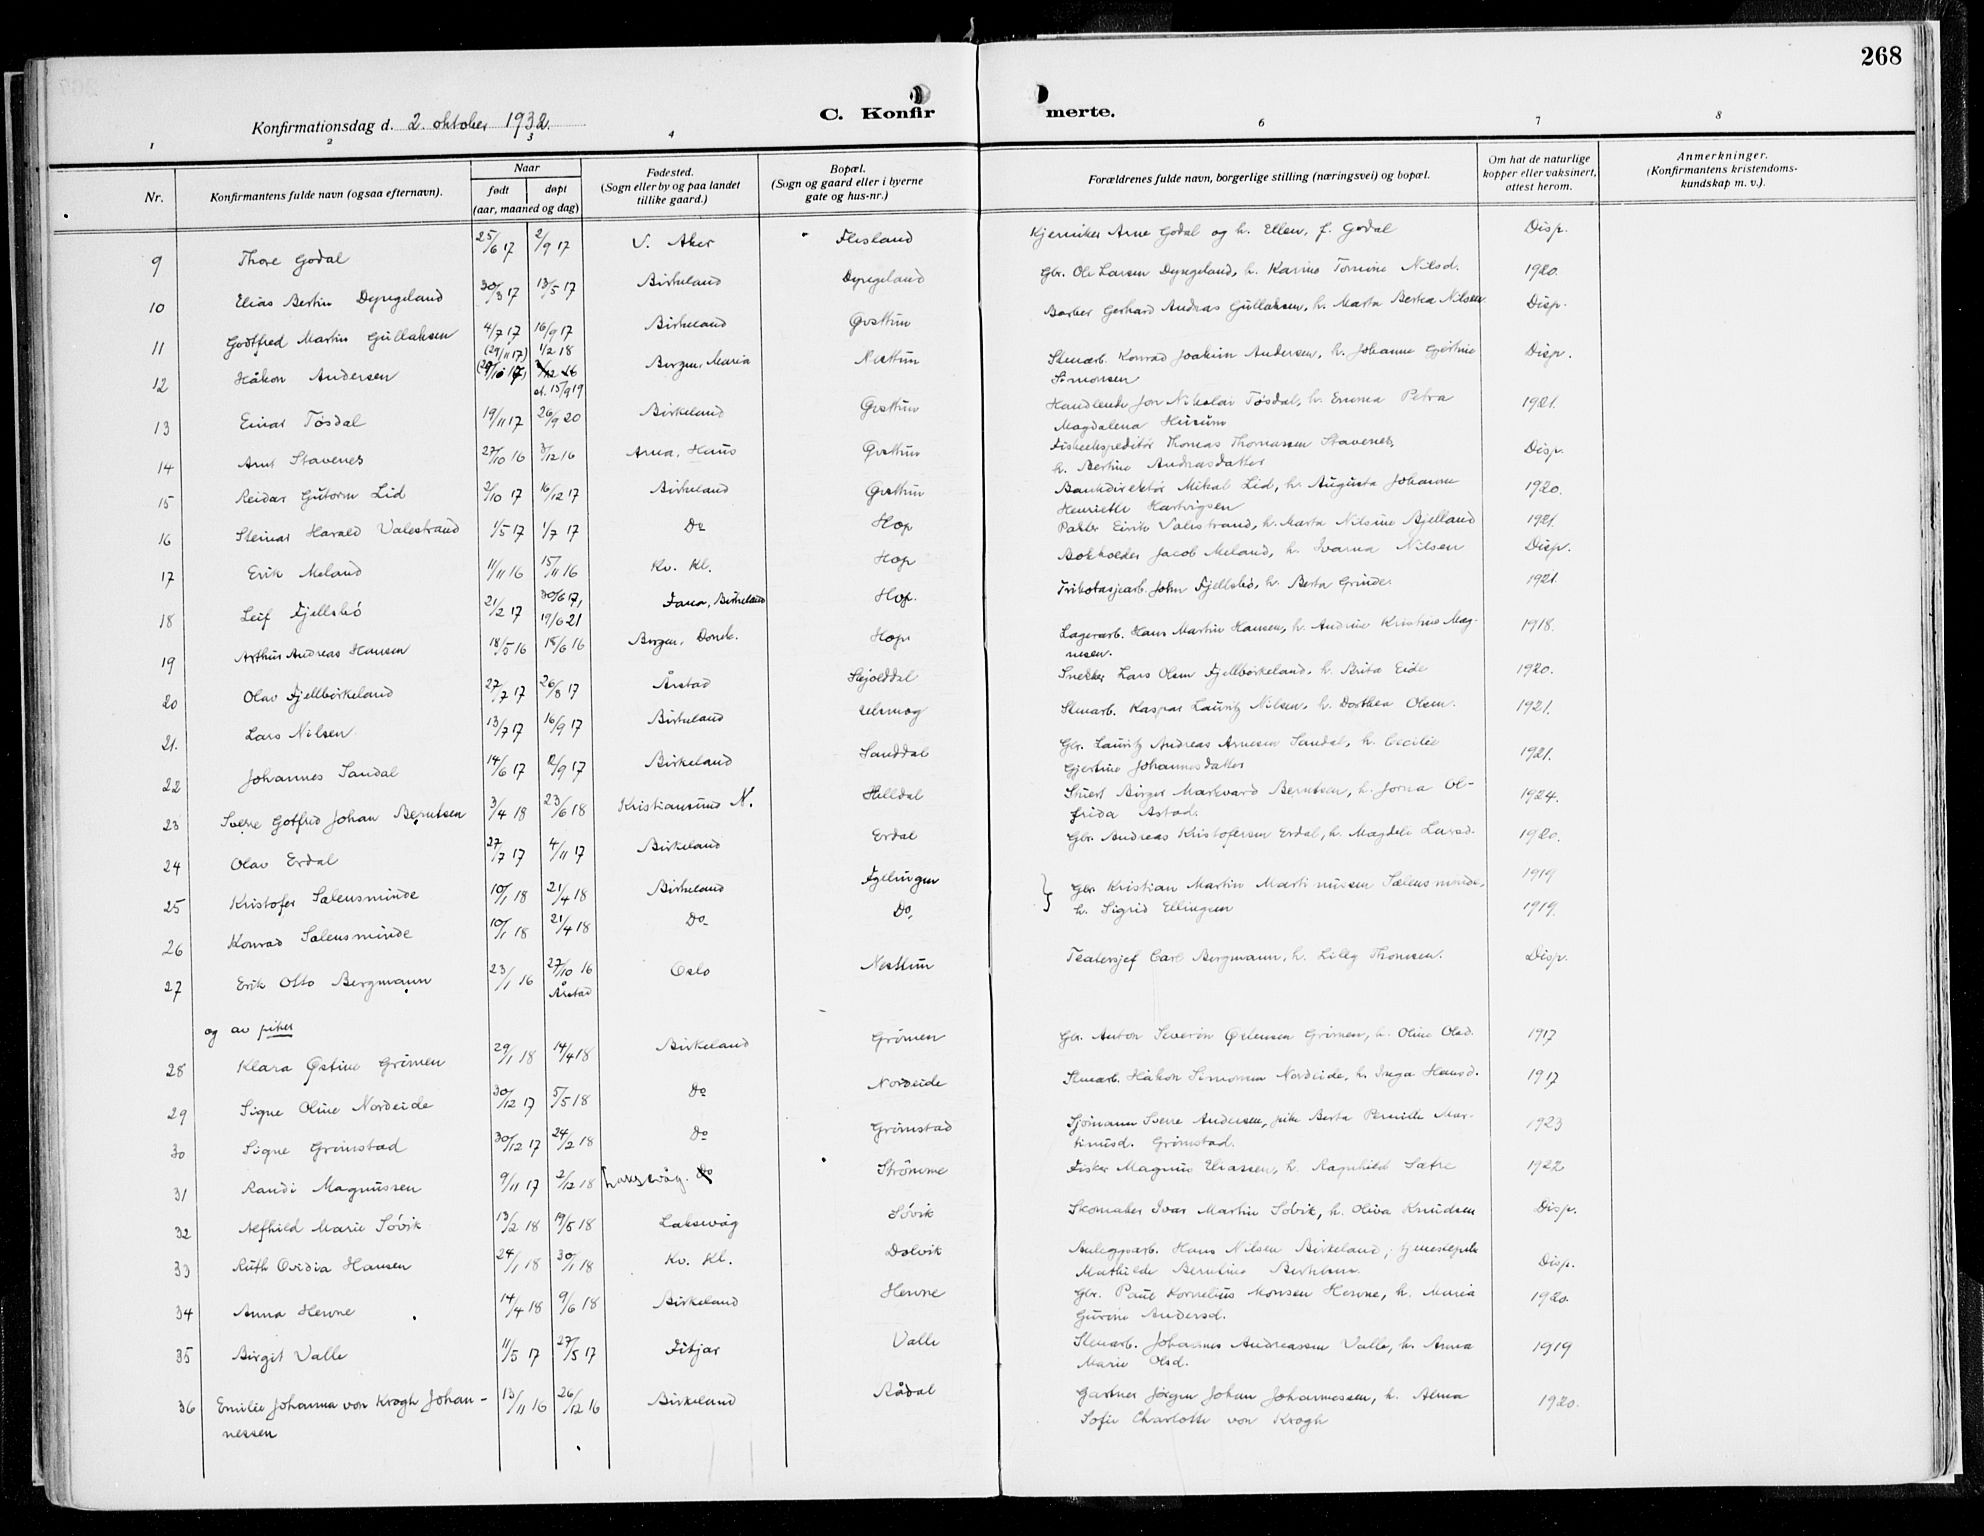 268
C. Konfirmerte.
Konfirmationsdag d. 2. oktober 1932.
1 2 3 4 6 7 8
Nr. Konfirmantens fulde navn (ogsaa efternavn). Naar født døpt (aar, maaned og dag) Fødested. (Sogn eller by og paa landet tillike gaard.) Bopæl. (Sogn og gaard eller i byerne gate og hus-nr.) Forældrenes fulde navn, borgerlige stilling (næringsvei) og bopæl. Om hat de naturlige kopper eller vaksinert, attest herom. Anmerkninger. (Konfirmantens kristendomskundskap m. v.).
9 Thore Godal 25/6 17 2/9 17 V. Aker Flesland Kjemiker Arne Godal og h. Ellen, f. Godal Disp.
10 Elias Bertin Dyngeland 30/3 17 13/5 17 Birkeland Dyngeland Gbr. Ole Larsen Dyngeland, h. Karine Tomine Nilsd. 1920.
11 Godtfred Martin Gullaksen 4/7 17 16/9 17 Birkeland Øvsttun Barber Gerhard Andreas Gullaksen, h. Marta Berta Nilsen Disp.
12 Håkon Andersen (29/11 17) 1/2 18 Bergen, Maria Nesttun Stenarb. Konrad Joakim Andersen, h. Johanne Gjertine Disp.
st. 15/9 19 Simonsen
13 Einar Tøsdal 19/11 17 26/9 20 Birkeland Øvsttun Handlende Jon Nikolai Tøsdal, h. Emma Petra 1921.
Magdalena Husum
14 Arnt Stavenes 27/10 16 3/12 16 Arna, Haus Øvsttun Fiskeekspeditør Thomas Thomassen Stavenes, Disp.
h. Bertine Andreasdatter
15 Reidar Gutorm Lid 2/10 17 16/12 17 Birkeland Øvsttun Bankdirektør Mikal Lid, h. Augusta Johanne 1920.
Henriette Hartvigsen
16 Steinar Harald Valestrand 1/5 17 1/7 17 Do Hop Pakker Eirik Valestrand, h. Marta Nilsine Bjelland 1921.
17 Erik Meland 11/11 16 15/11 16 Kv. Kl. Hop Bokholder Jacob Meland, h. Ivarna Nilsen Disp.
18 Leif Fjellsbø 21/2 17 30/6 17, Fana, Birkeland Hop. Trikotasjearb. John Fjellsbø, h. Berta Grinde. 1921.
19/6 21
19 Arthur Andreas Hansen 18/5 16 18/6 16 Bergen, Domk. Hop Lagerarb. Hans Martin Hansen, h. Andrine Kristine Mag- 1918.
nesen.
20 Olav Fjellbirkeland 27/7 17 26/8 17 Årstad Skjolddal Snekker Lars Olsen Fjellbirkeland, h. Brita Eide 1920.
21. Lars Nilsen 13/7 17 16/9 17 Birkeland Stenarb. Kaspar Lauritz Nilsen, h. Dorthea Olsen. 1921.
22 Johannes Sandal 14/6 17 2/9 17 Birkeland Sanddal Gbr. Lauritz Andreas Arnesen Sandal, h. Cecilie 1921.
Gjertine Johannesdatter
23 Sverre Gotfred Johan Berntsen 3/4 18 23/6 18 Kristiansund N. Helldal Stuert Birger Markvard Berntsen, h. Jorna Ol- 1924.
frida Astad.
24 Olav Erdal 27/7 17 4/11 17 Birkeland Erdal Gbr. Andreas Kristofersen Erdal, h. Magdeli Larsd. 1920.
25 Kristofer Salensminde 10/1 18 21/4 18 Birkeland Fyllingen Gbr. Kristian Martin Martinussen Salensminde, 1919
26 Konrad Salensminde 10/1 18 21/4 18 Do Do h. Sigrid Ellingsen 1919.
27 Erik Otto Bergmann 23/1 16 27/10 16 Oslo Nesttun Teatersjef Carl Bergmann, h. Lilly Thomsen. Disp.
Årstad
og av piker
28 Klara Østine Grimen 29/1 18 14/4 18 Birkeland Grimen Gbr. Anton Severin Østensen Grimen, h. Oline Olsd. 1917
29 Signe Oline Nordeide 30/12 17 5/5 18 Do Nordeide Stenarb. Håkon Simonsen Nordeide, h. Inga Hansd. 1917
30 Signe Grimstad 30/12 17 24/2 18 Do Grimstad Sjømann Sverre Andersen, pike Berta Pernille Mar- 1923
tinusd. Grimstad.
31 Randi Magnussen 9/11 17 2/12 18 Laksevåg. Do Strømme Fisker Magnus Eliassen, h. Ragnhild Sætre 1922
32 Alfhild Marie Søvik 13/2 18 19/5 18 Laksevåg Søvik Skomaker Ivar Martin Søvik, h. Oliva Knudsen Disp.
33 Ruth Ovidia Hansen 24/1 18 30/1 18 Kv. Kl. Dolvik Anleggsarb. Hans Nilsen Birkeland, tjenestepike Disp.
Mathilde Berntine
34 Anna Hevne 14/4 18 9/6 18 Birkeland Hevne Gbr. Paul Kornelius Monsen Hevne, h. Maria 1920.
Gurine Andersd.
35 Birgit Valle 11/5 17 27/5 17 Fitjar Valle Stenarb. Johannes Andreassen Valle, h. Anna 1919
Marie Olsd.
36 Emilie Johanna von Krogh Johan- 13/11 16 26/12 16 Birkeland Rådal Gartner Jørgen Johan Johannessen, h. Alma 1920.
nessen Sofie Charlotte von Krogh